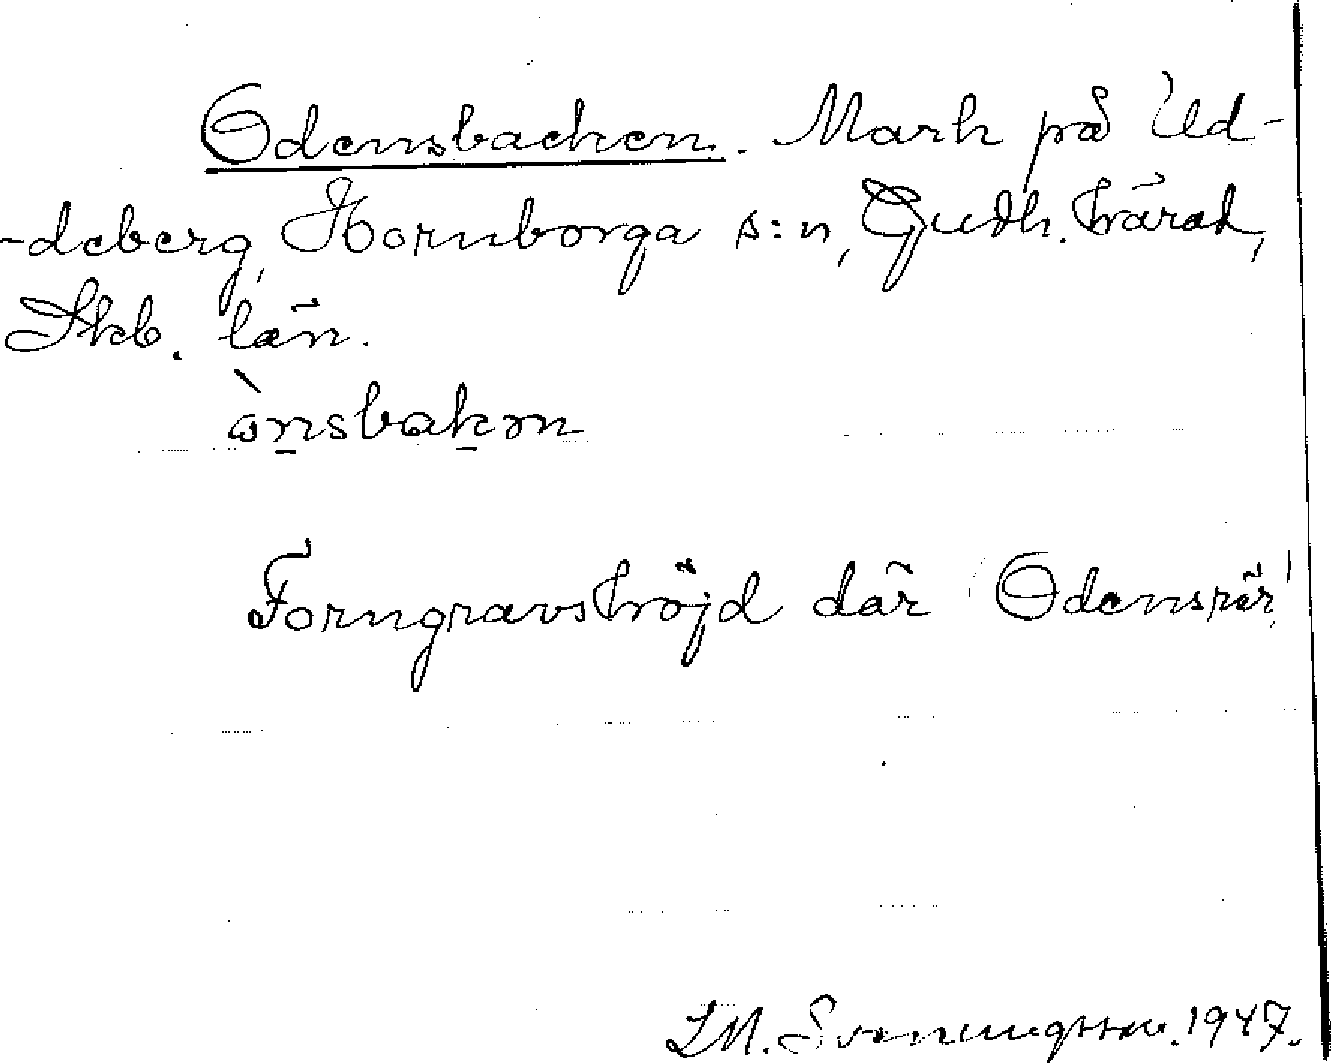 Odensbacken. Mark på Ud-
-deberg, Hornborga s:n, Gudh. härad,
Skb. län.
ò̀nsbakən
Forngravshöjd där 'Odensrör'
LM. Svenungsson. 1947.